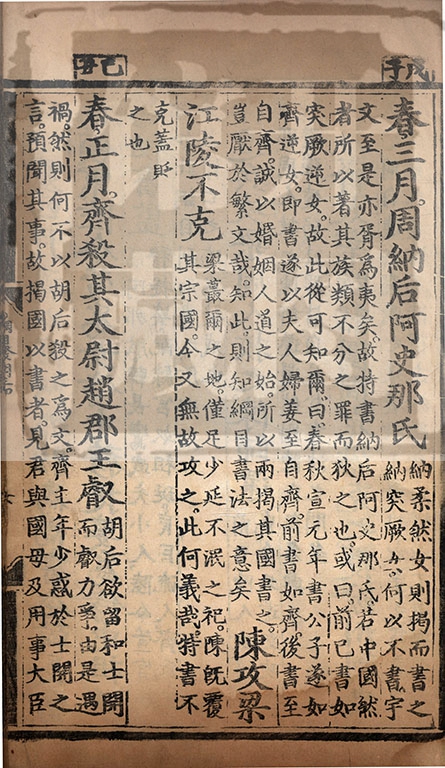 戊子
春三月。周納后阿史那氏
納柔然女則揭而書之
納突厥女。何以不書。宇
文至是亦胥爲夷矣。故特書納后阿史那氏。若中國然
者所以著其族類不分之罪而狄之也。或曰。前已書如
突厥逆女。故此從可知爾。曰。春秋宣元年書公子遂如
齊逆女。即書遂以夫人婦姜至自齊。前書如齊。後書至
自齊。誠以婚姻人道之始。所以兩揭其國書之。
豈厭於繁文哉。知此。則知綱目書法之意矣
陳攻梁
江陵不克
梁蕞爾之地。僅足少延不泯之祀。陳旣覆
其宗國。今又無故攻之。此何義哉。特書不
克蓋貶
之也
己丑
春正月。齊殺其太尉趙郡王叡
胡后欲留和士開
而叡力爭。由是遇
禍。然則何不以胡后殺之爲文。齊主年少惑於士開之
言。預聞其事。故揭國以書者。見君與國母及用事大臣